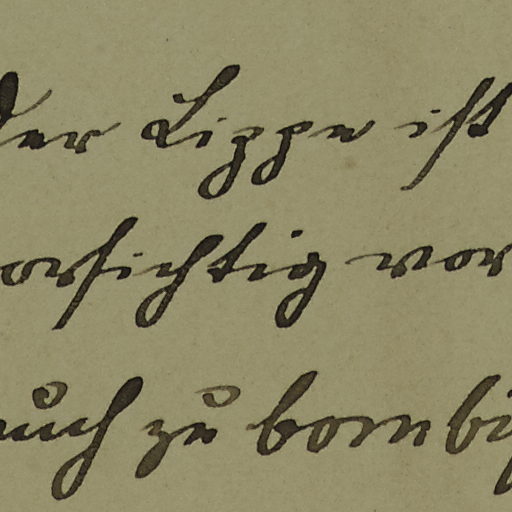 der Lippe ist
vorsichtig vor
auch zu bombi